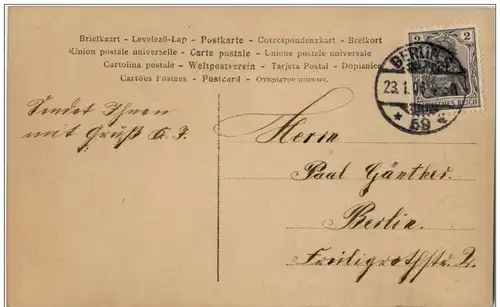 Briefkaart - Levelező-Lap - Postkarte - Correspondenzkart - Brefkort
Union postale universelle - Carte postale - Unione postale universale
Cartolina postale - Weltpostverein - Tarjeta Postal - Dopisnice
Cartões Postaes - Postcard - Открытое письмо.
2 2
BERLIN S.
23.1.06
* 59 a
REICH
Sendet Ihnen
mit Gruß
Herrn
Paul Günther.
Berlin.
Freiligrathstr. 2.